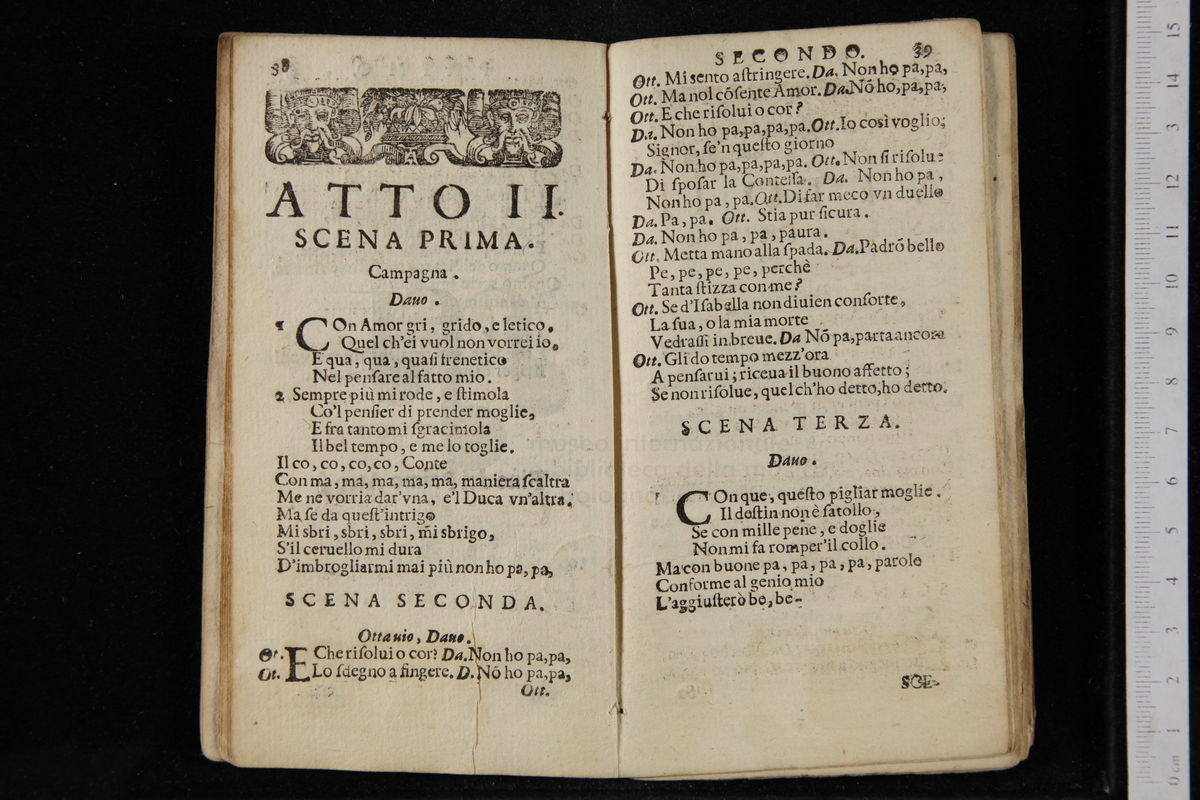 38
ATTO II.
SCENA PRIMA.
Campagna.
Dauo.
1 COn Amor gri, grido, e letico,
Quel ch'ei vuol non vorrei io.
E qua, qua, quaſi frenetico
Nel penſare al fatto mio.
2 Sempre più mi rode, e ſtimola
Co'l penſier di prender moglie,
E fra tanto mi ſgracimola
Il bel tempo, e me lo toglie.
Il co, co, co, co, Conte
Con ma, ma, ma, ma, ma, maniera ſcaltra
Me ne vorria dar'vna, e'l Duca vn'altra;
Ma ſe da queſt'intrigo
Mi sbri, sbri, sbri, mi sbrigo,
S'il ceruello mi dura
D'imbrogliarmi mai più non ho pa, pa,
SCENA SECONDA.
Ottauio, Dauo.
Ot. E Che riſolui o cor? Da. Non ho pa, pa,
Ot. Lo ſdegno a fingere. D. Nō ho pa, pa,
Ott.
SECONDO. 39
Ott. Mi sento aſtringere. Da. Non ho pa, pa,
Ott. Ma nol cōſente Amor. Da. Nō ho, pa, pa,
Ott. E che riſolui o cor?
Da. Non ho pa, pa, pa, pa. Ott. Io così voglio;
Signor, ſe'n queſto giorno
Da. Non ho pa, pa, pa, pa. Ott. Non ſi riſolue
Di ſpoſar la Conteſſa. Da. Non ho pa,
Non ho pa, pa. Ott. Di far meco vn duello
Da. Pa, pa. Ott. Stia pur ſicura.
Da. Non ho pa, pa, paura.
Ott. Metta mano alla ſpada. Da. Padrō bello
Pe, pe, pe, pe, perchè
Tanta ſtizza con me?
Ott. Se d'Iſabella non diuien conſorte,
La ſua, o la mia morte
Vedraſſi in breue. Da Nō pa, parta ancora
Ott. Gli do tempo mezz'ora
A penſarui; riceua il buono affetto;
Se non riſolue, quel ch'ho detto, ho detto.
SCENA TERZA.
Dauo.
COn que, queſto pigliar moglie.
Il deſtin non è ſatollo,
Se con mille pene, e doglie
Non mi fa romper'il collo.
Ma con buone pa, pa, pa, pa, parole
Conforme al genio mio
L'aggiuſterò be, be-
SCE-